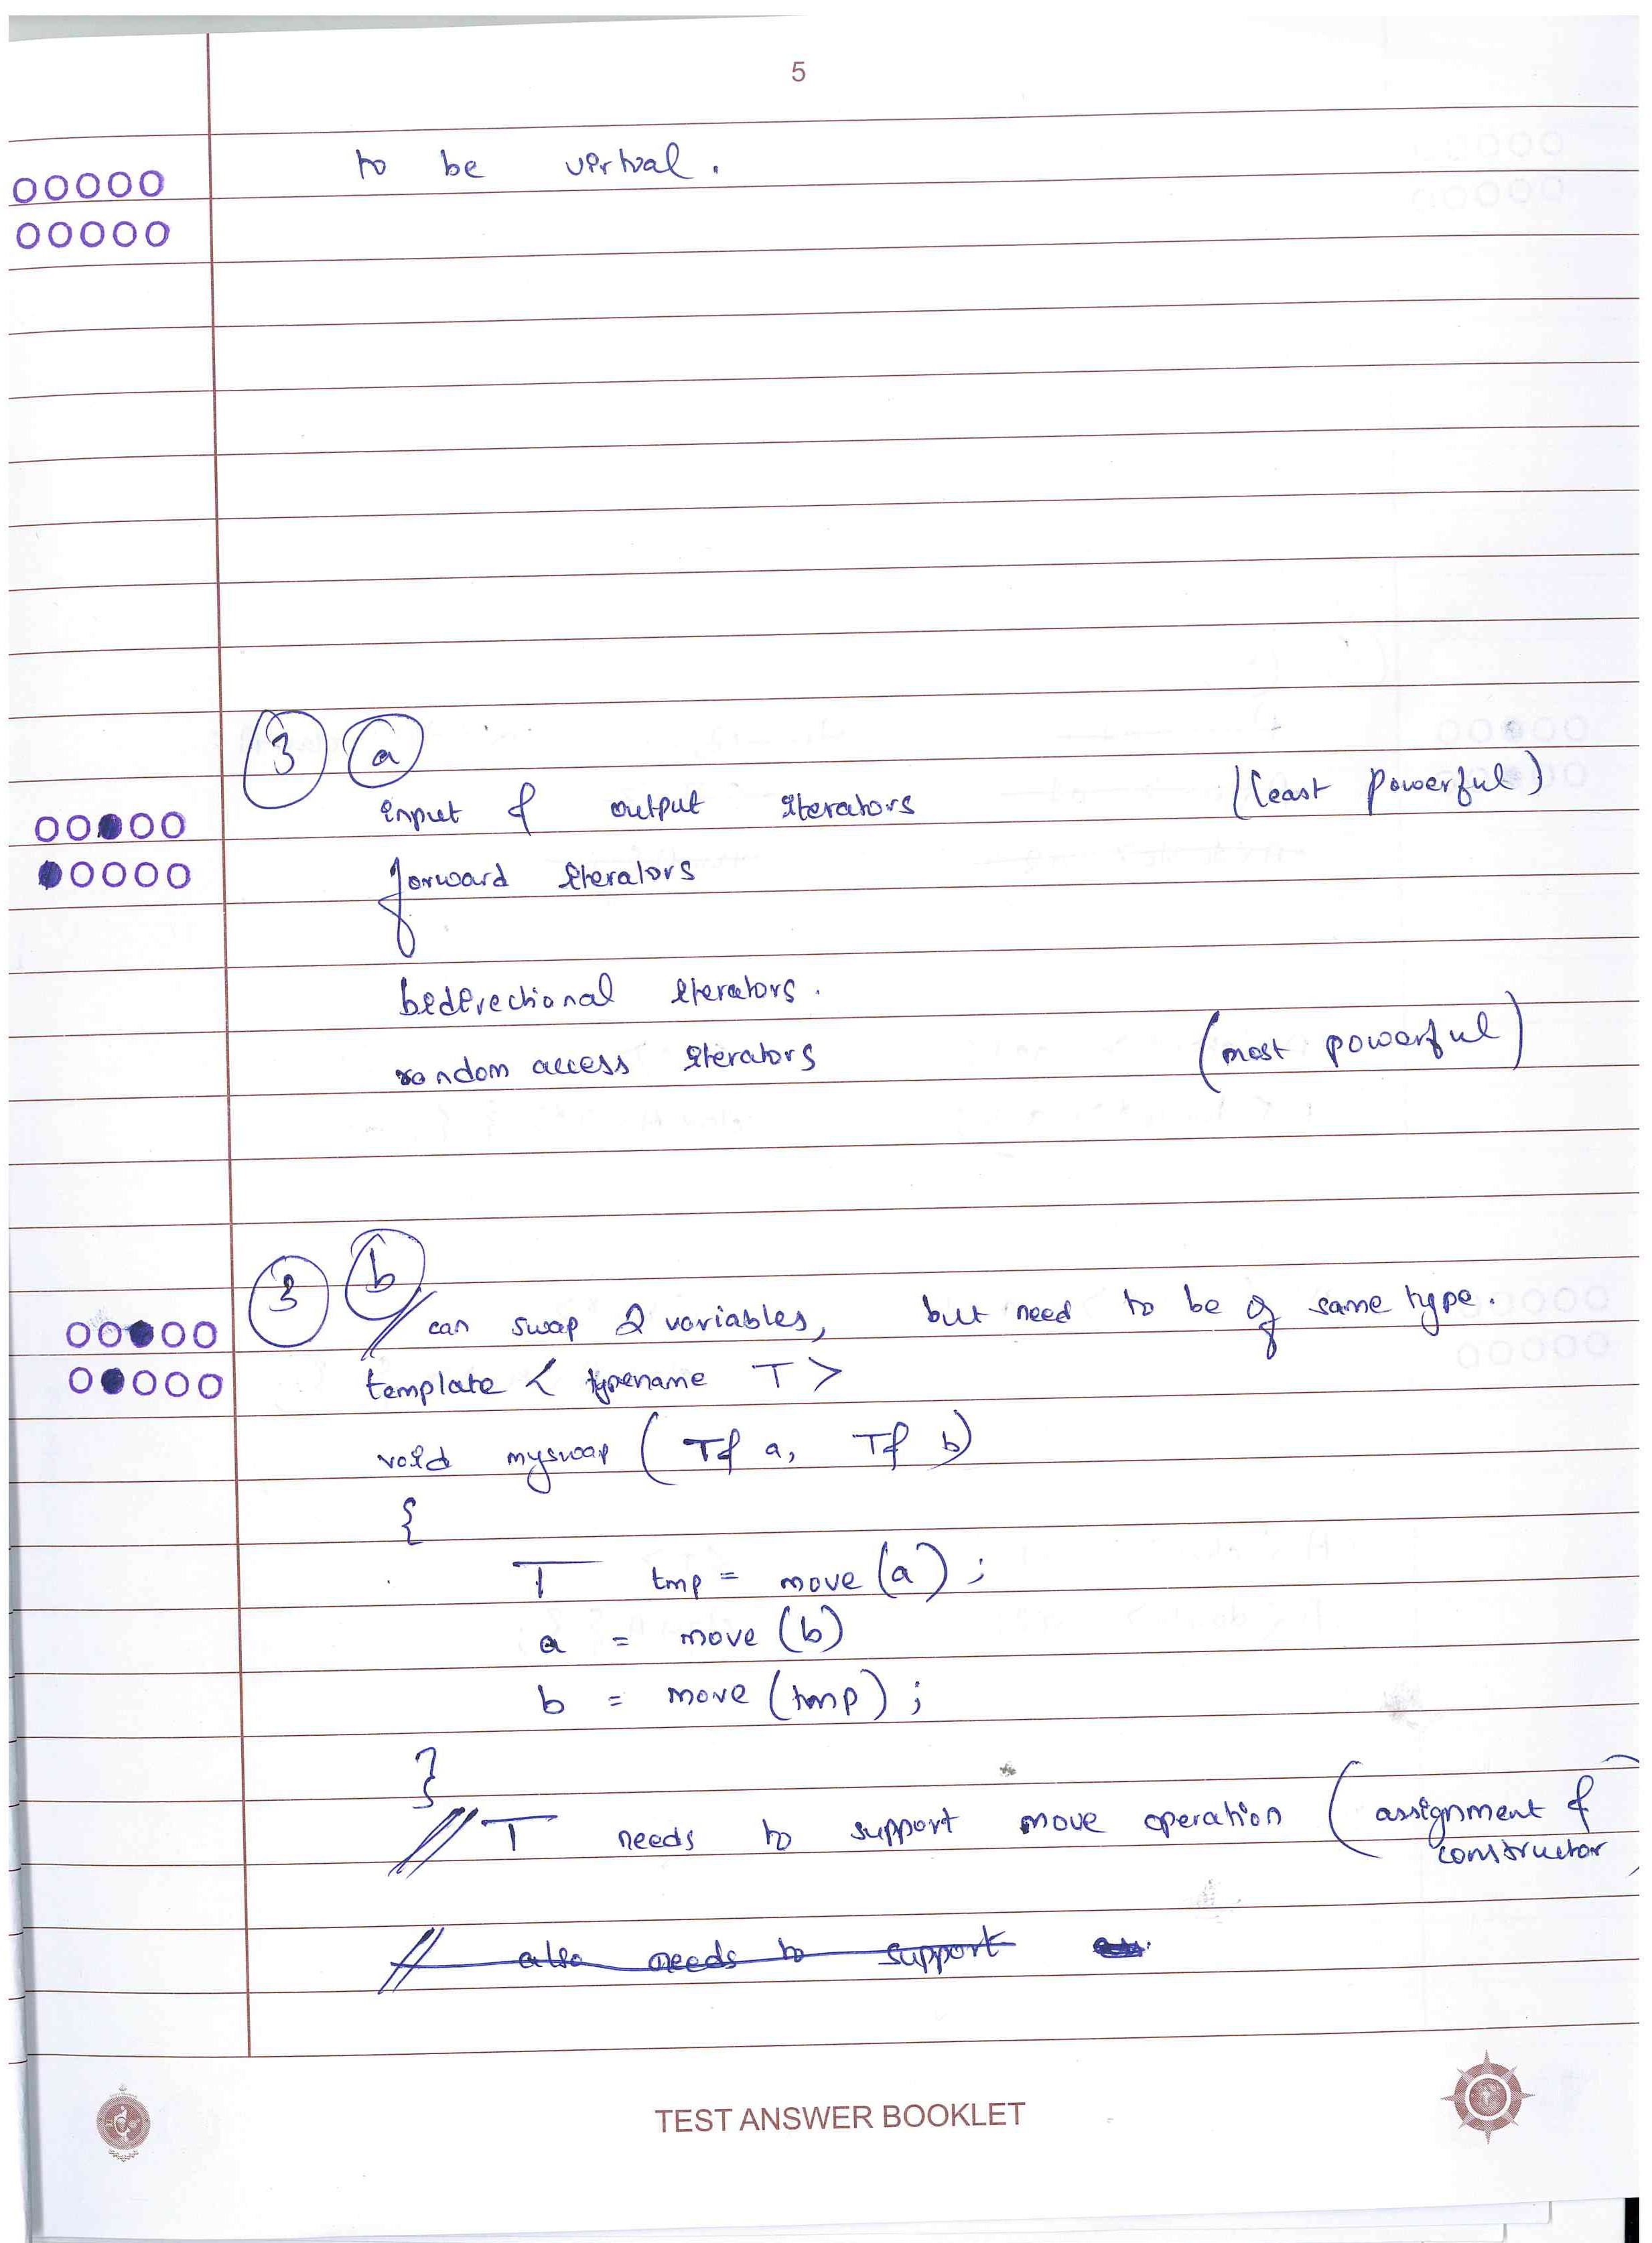 5
to be virtual.
3 a
input & output iterators (least powerful)
forward iterators
bidirectional iterators.
random access iterators (most powerful)
3 b
// can swap 2 variables, but need to be of same type.
template < typename T >
void myswap ( T& a, T& b)
{
T tmp = move (a) ;
a = move (b)
b = move (tmp) ;
}
// T needs to support move operation ( assignment &
constructor )
// also needs to support
TEST ANSWER BOOKLET